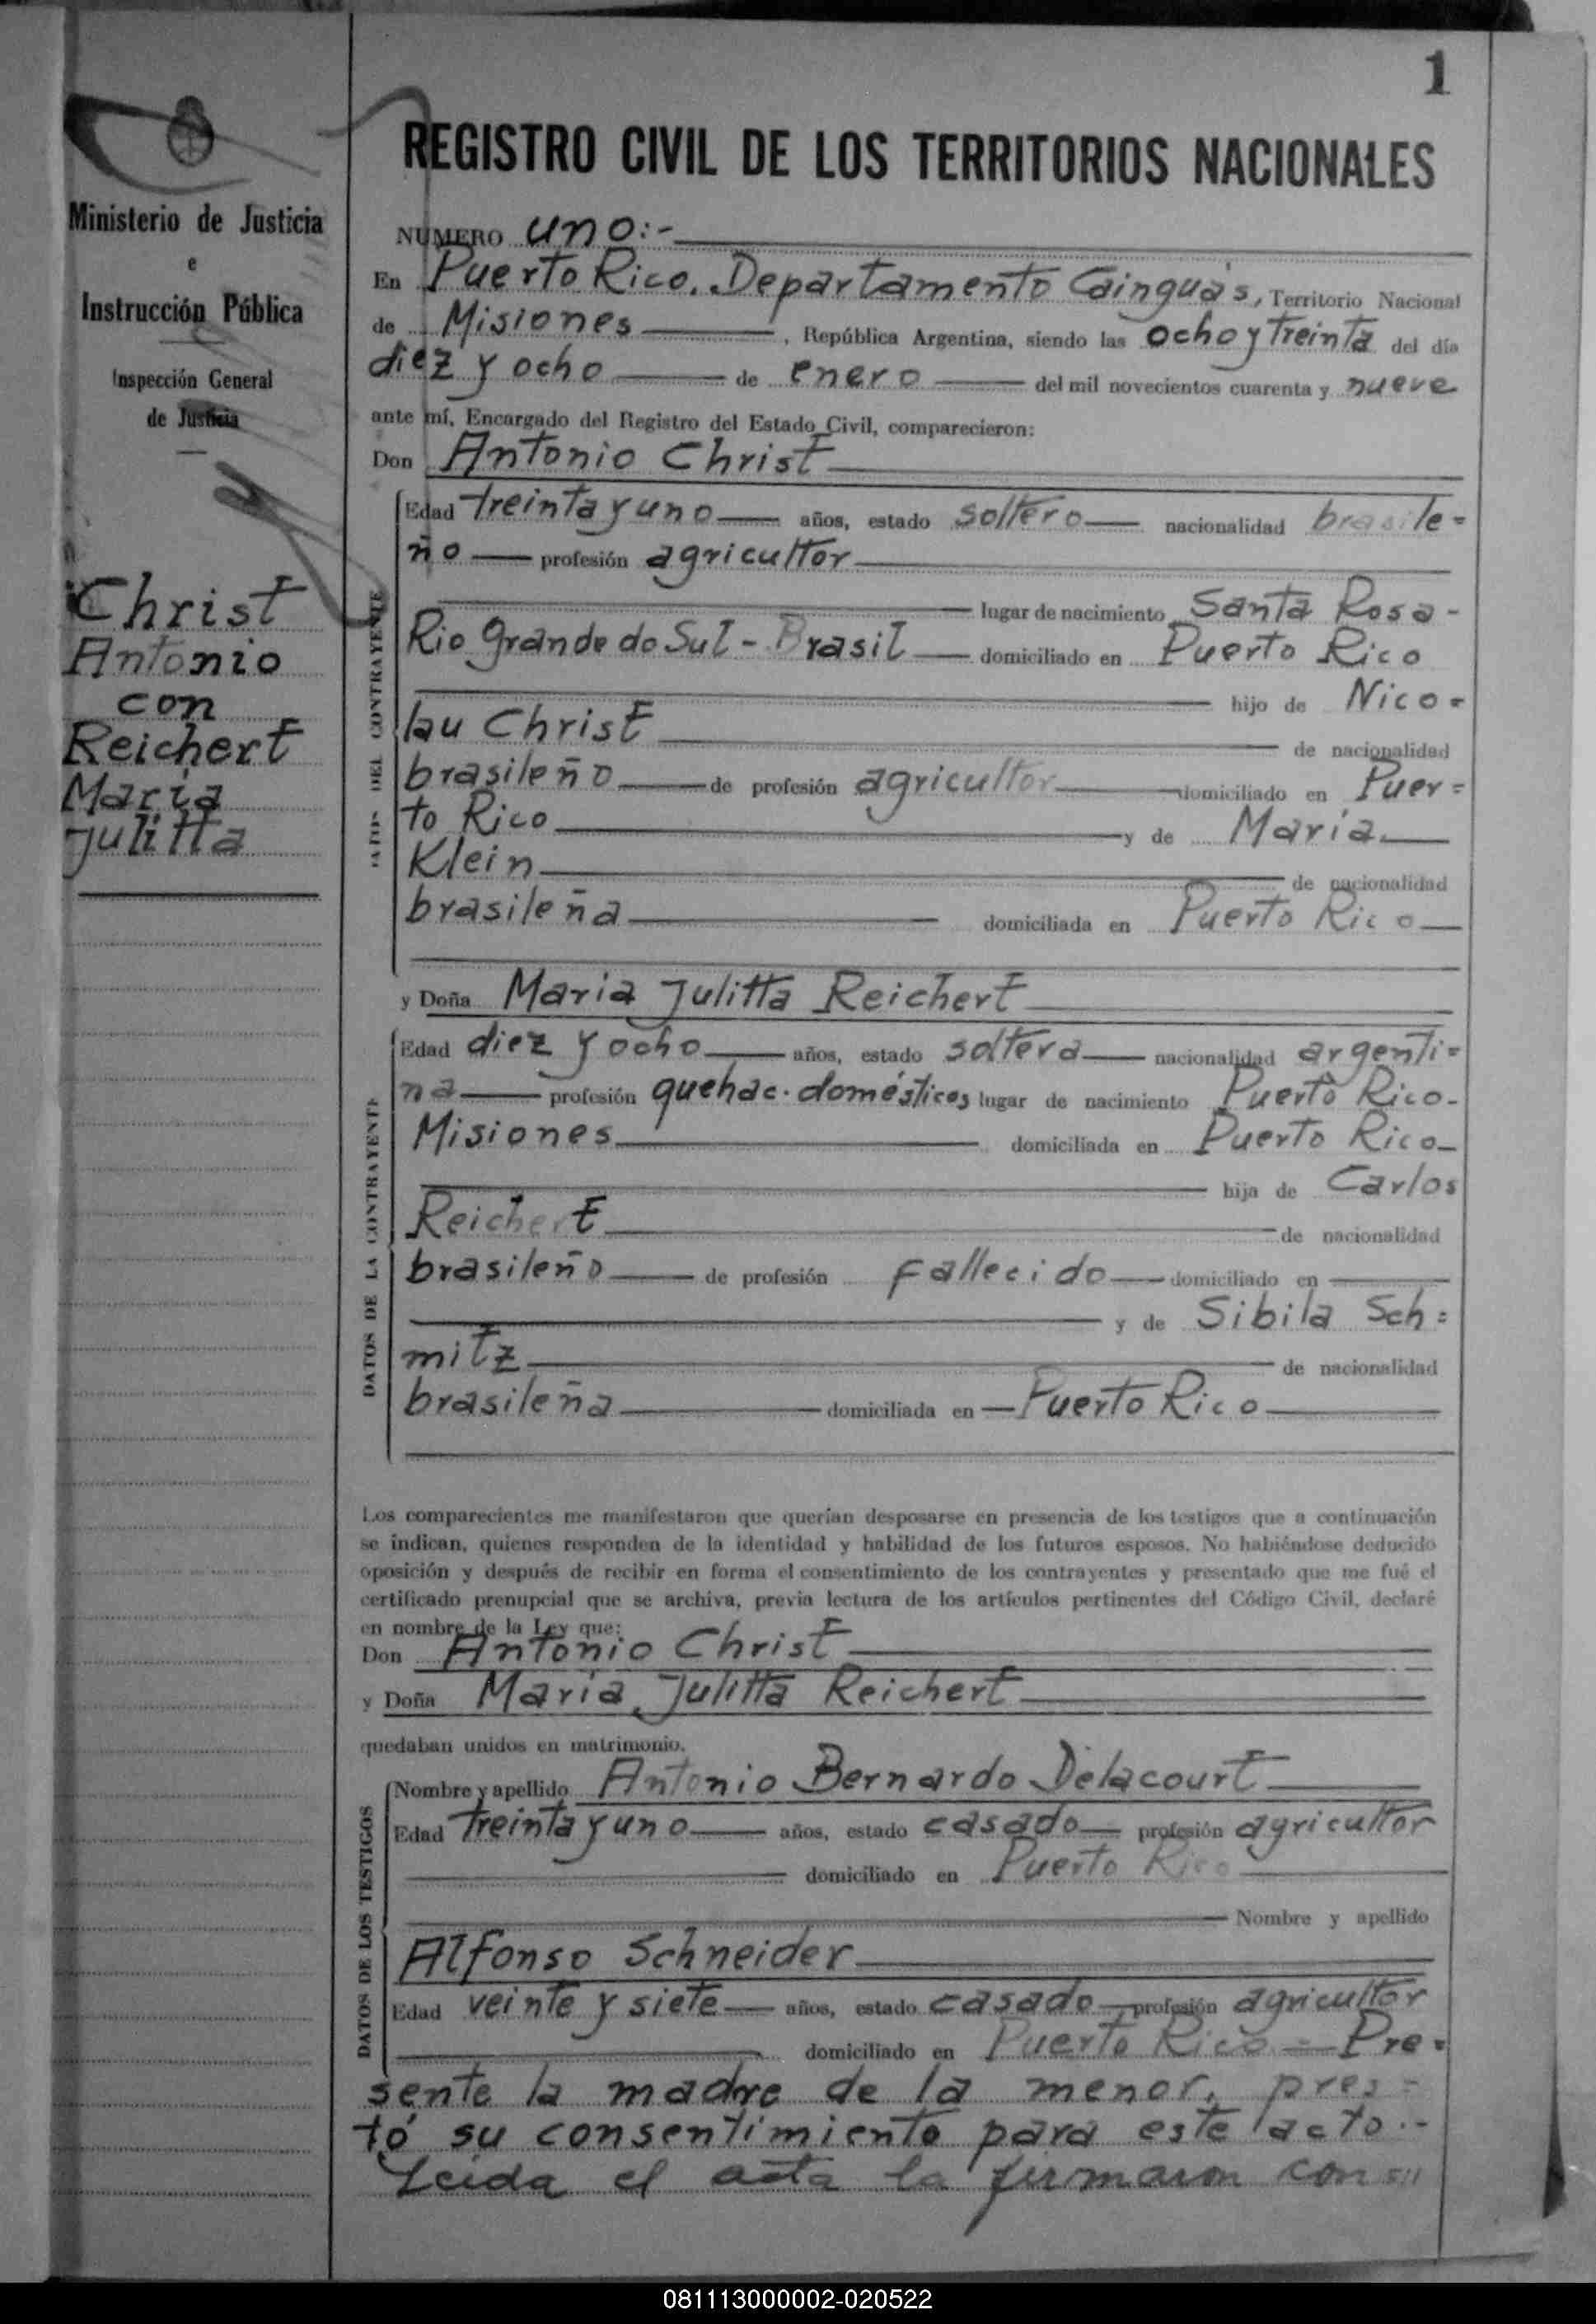 1
Ministerio de Justicia
e
Instrucción Pública
Inspección General
de Justicia
Christ
Antonio
con
Reichert
María
Julitta
REGISTRO CIVIL DE LOS TERRITORIOS NACIONALES
NUMERO uno:-
En Puerto Rico. Departamento Cainguás, Territorio Nacional
de Misiones, República Argentina, siendo las ocho y treinta del día
diez y ocho de enero del mil novecientos cuarenta y nueve
ante mí, Encargado del Registro del Estado Civil, comparecieron:
Don Antonio Christ
DATOS DEL CONTRAYENTE
Edad treinta y uno años, estado soltero nacionalidad brasile=
ño profesión agricultor
lugar de nacimiento Santa Rosa-
Rio Grande do Sul - Brasil domiciliado en Puerto Rico
hijo de Nico=
lau Christ de nacionalidad
brasileño de profesión agricultor domiciliado en Puer=
to Rico y de María
Klein de nacionalidad
brasileña domiciliada en Puerto Rico
y Doña Maria Julitta Reichert
DATOS DE LA CONTRAYENTE
Edad diez y ocho años, estado soltera nacionalidad argenti=
na profesión quehac. domésticos lugar de nacimiento Puerto Rico-
Misiones domiciliada en Puerto Rico
hija de Carlos
Reichert de nacionalidad
brasileño de profesión fallecido domiciliado en
y de Sibila Sch=
mitz de nacionalidad
brasileña domiciliada en Puerto Rico
Los comparecientes me manifestaron que querían desposarse en presencia de los testigos que a continuación
se indican, quienes responden de la identidad y habilidad de los futuros esposos. No habiéndose deducido
oposición y después de recibir en forma el consentimiento de los contrayentes y presentado que me fué el
certificado prenupcial que se archiva, previa lectura de los artículos pertinentes del Código Civil, declaré
en nombre de la Ley que:
Don Antonio Christ
y Doña María Julitta Reichert
quedaban unidos en matrimonio.
DATOS DE LOS TESTIGOS
Nombre y apellido Antonio Bernardo Delacourt
Edad treinta y uno años, estado casado profesión agricultor
domiciliado en Puerto Rico
Nombre y apellido
Alfonso Schneider
Edad veinte y siete años, estado casado profesión agricultor
domiciliado en Puerto Rico = Pre=
sente la madre de la menor, pres=
tó su consentimiento para este acto.-
Leída el acta la firmaron con
081113000002-020522